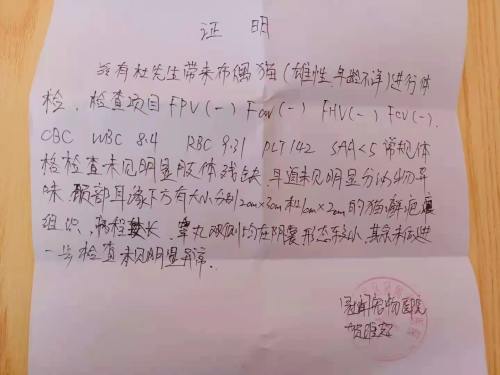 证 明
兹有杜先生带来布偶猫(雄性 年龄不详)进行体
检. 检查项目 FPV(-) Fcov(-) FHV(-) Fcv(-).
CBC WBC 8.4 RBC 9.31 PLT 142 SAA<5 常规体
格检查未见明显肢体残缺 耳道未见明显分泌物异
味. 颈部耳缘下方有大小分别 2cm×3cm 和 1cm×2cm 的猫癣疤
组织, 病程较长, 睾丸双侧均在阴囊 形态较小 其余未做进
一步检查 未见明显异常.
宠物医院